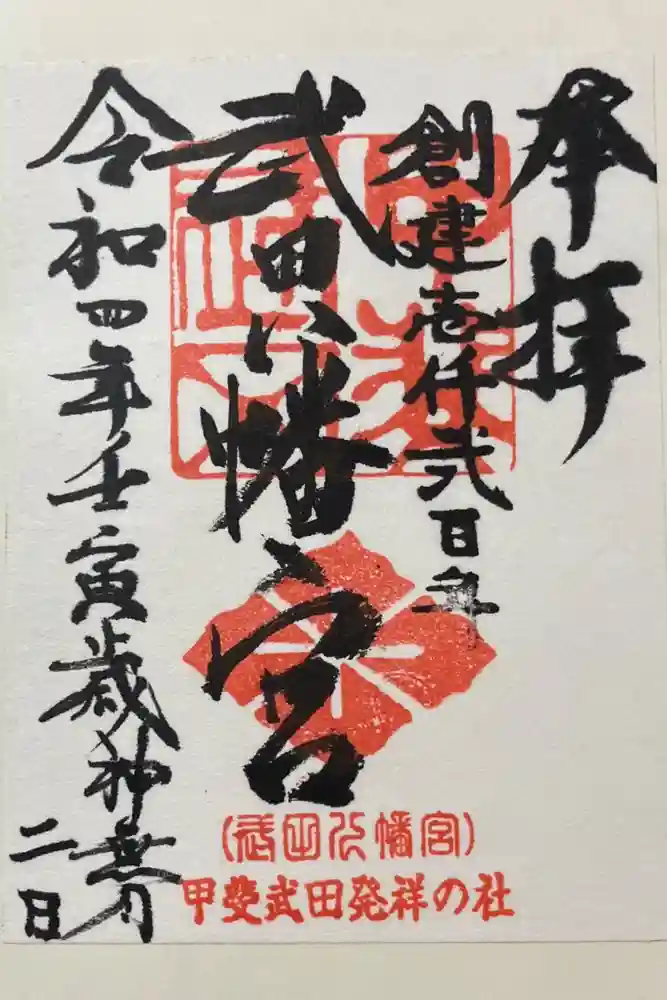 奉拝
創建壱仟弐百年
武田八幡宮
令和四年壬寅歳神無月
二日
(武田八幡宮)
甲斐武田発祥の社